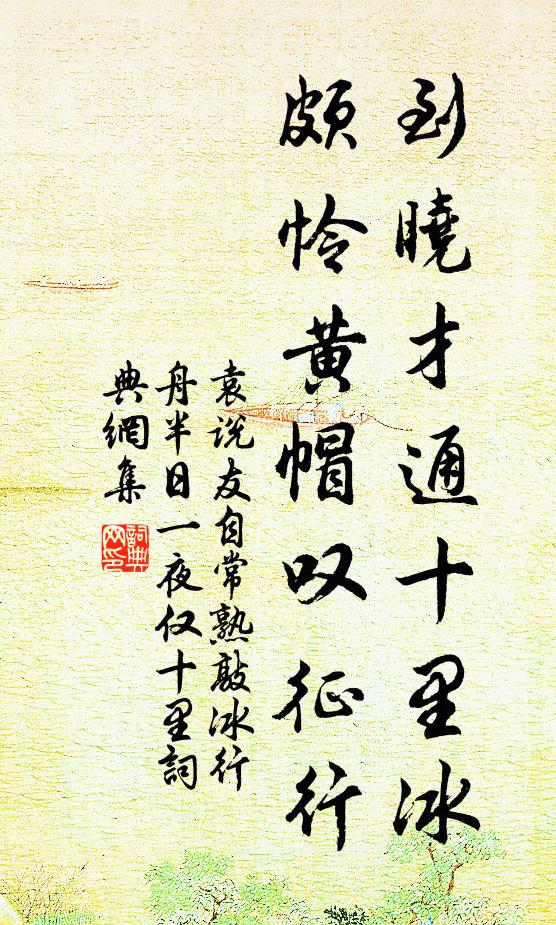 到曉才通十里冰
頗怜黄帽叹征行
袁说友自常熟敲冰行
舟半日一夜仅十里詞
典網集
詞典
网印